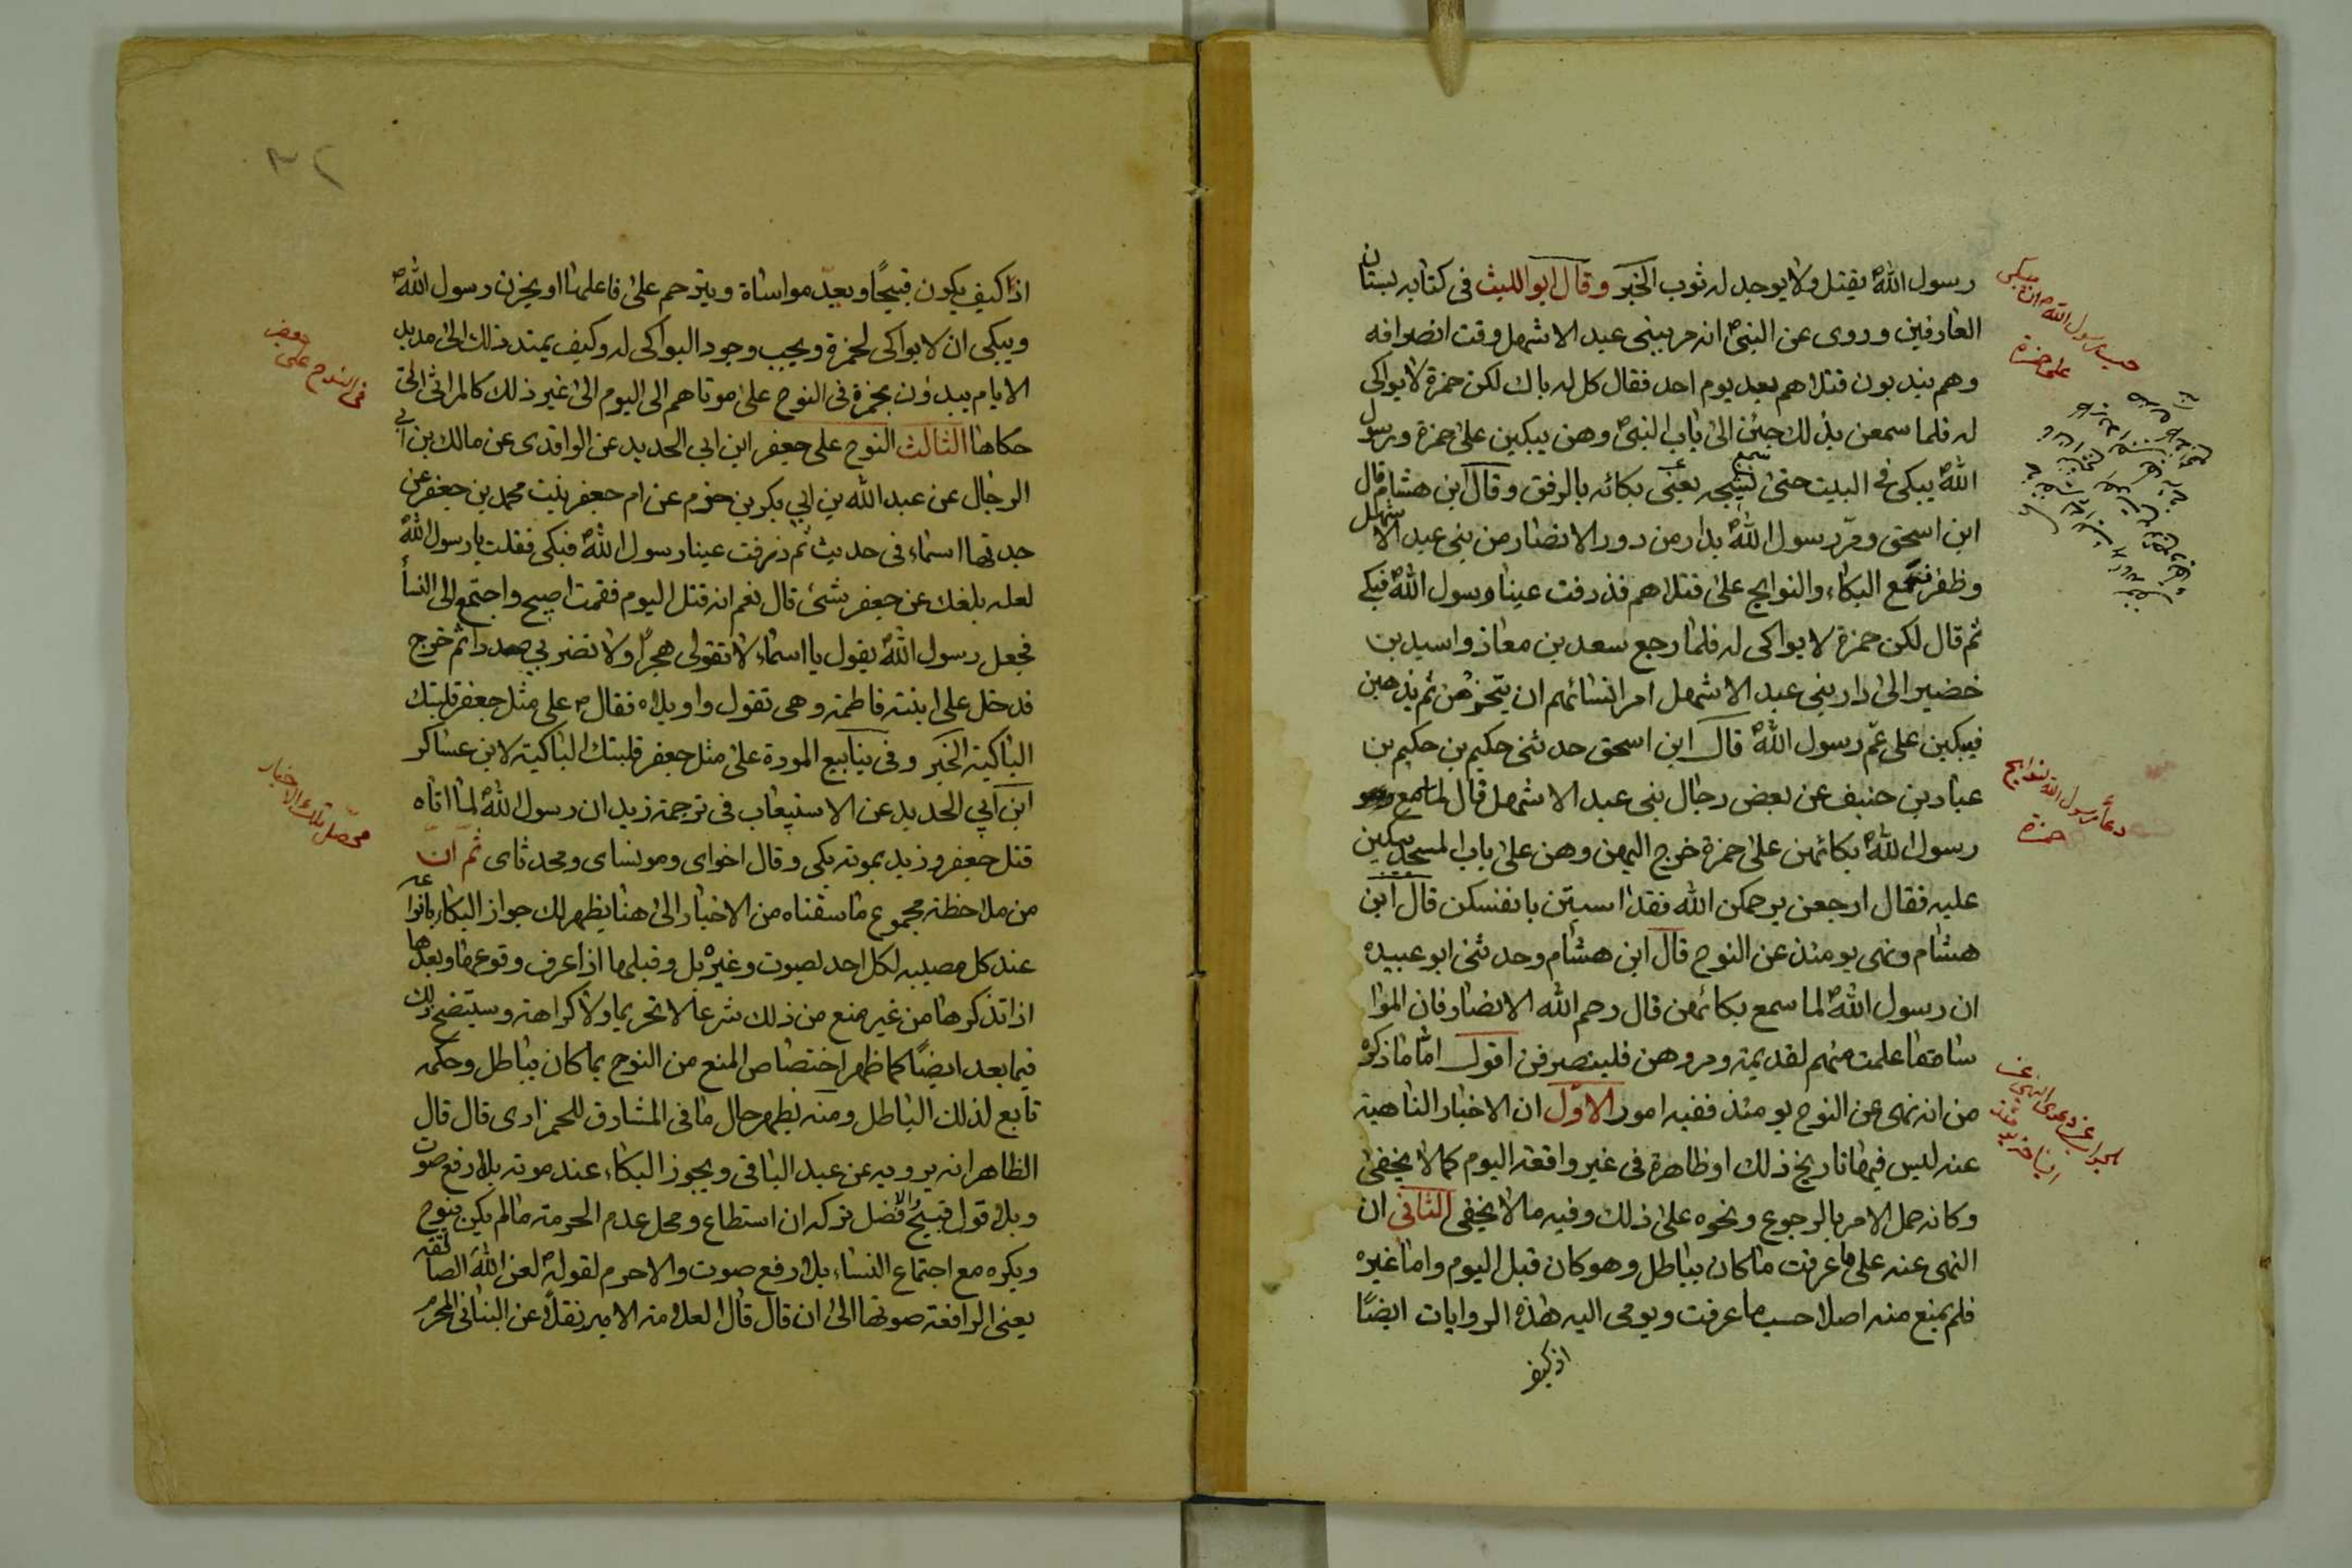 رسول اللهؐ يقتل ولا يوجد له ثوب الخبر وقال ابو الليث فى كتابه بستان
العارفين وروى عن النبىؐ انه مر ببنى عبد الاشهل وقت انصرافه
وهم يندبون قتلاهم بعد يوم احد فقال كل له باك لكن حمزة لا بواكى
له فلما سمعن بذلك جئن الى باب النبىؐ وهن يبكين على حمزة ورسول
اللهؐ يبكى فى البيت حتى سمع نشيجه يعنى بكائه بالرفق وقال ابن هشام قال
ابن اسحق ومرّ رسول اللهؐ بدار من دور الانصار من بنى عبد الاشهل
وظفر فسمع البكاء والنوايح على قتلاهم فذرفت عينا رسول اللهؐ فبكى
ثم قال لكن حمزة لا بواكى له فلما رجع سعد بن معاذ واسيد بن
خضير الى دار بنى عبد الاشهل امرا نسائهم ان يتحزمن ثم يذهبن
فيبكين على عم رسول اللهؐ قال ابن اسحق حدثنى حكيم بن حكيم بن
عباد بن حنيف عن بعض رجال بنى عبد الاشهل قال لما سمع
رسول اللهؐ بكائهن على حمزة خرج اليهن وهن على باب المسجد يبكين
عليه فقال ارجعن يرحمكن الله فقد اسيتن بانفسكن قال ابن
هشام ونهى يومئذ عن النوح قال ابن هشام وحدثنى ابو عبيده
ان رسول اللهؐ لما سمع بكائهن قال رحم الله الانصار فان الموا
ساة منها علمت منهم لقديمة ومروهن فلينصرفن اقول اما ما ذكره
من انه نهى عن النوح يومئذ ففيه امور الاول ان الاخبار الناهية
عنه ليس فيها تاريخ ذلك او ظاهرة فى غير واقعة اليوم كما لا يخفى
وكانه حمل الامر بالرجوع ونحوه على ذلك وفيه ما لا يخفى الثانى ان
النهى عنه على ما عرفت ما كان بباطل وهو كان قبل اليوم واما غيره
فلم يمنع منه اصلا حسب ما عرفت ويومى اليه هذه الروايات ايضًا
اذ كيف
رسول اللهؐ ان يبكى
على حمزة
دعاء رسول الله لنوايح
حمزة
اذ كيف يكون قبيحًا ويعدّ مواساة ويترحم على فاعلها او يحزن رسول اللهؐ
ويبكى ان لا بواكى لحمزة ويجب وجود البواكى له وكيف يمتد ذلك الى مديد
الايام يبدؤن بحمزة فى النوح على موتاهم الى اليوم الى غير ذلك كالمراثى التى
حكاها الثالث النوح على جعفر ابن ابى الحديد عن الواقدى عن مالك بن ابى
الرجال عن عبد الله بن ابى بكر بن حزم عن ام جعفر بنت محمد بن جعفر عن
جدتها اسماء فى حديث ثم ذرفت عينا رسول اللهؐ فبكى فقلت يا رسول اللهؐ
لعله بلغك عن جعفر شئ قال نعم انه قتل اليوم فقمت اصيح واجتمع الى النسأ
فجعل رسول اللهؐ يقول يا اسماء لا تقولى هجرًا ولا تضربى صدرا ثم خرج
فدخل على ابنته فاطمة وهى تقول واويلاه فقالؐ على مثل جعفر فلتبك
الباكية الخبر وفى ينابيع المودة على مثل جعفر فلتبك الباكية لابن عساكر
ابن ابى الحديد عن الاستيعاب فى ترجمة زيد ان رسول اللهؐ لما اتاه
قتل جعفر وزيد بموته بكى وقال اخواى ومونساى ومحدثاى ثمّ انّ
من ملاحظة مجموع ما سقناه من الاخبار الى هنا يظهر لك جواز البكاء بانواعه
عند كل مصيبه لكل احد بصوت وغيره بل وقبلها اذا عرف وقوعها وبعدها
اذا تذكرها من غير منع من ذلك شرعا لا تحريما ولا كراهة وسيتضح ذلك
فيما بعد ايضًا كما ظهر اختصاص المنع من النوح بما كان بباطل وحكمه
تابع لذلك الباطل ومنه يظهر حال ما فى المشارق للحمزاوى قال قال
الظاهر انه يرويه عن عبد الباقى ويجوز البكاء عند موته بلا رفع صوت
وبلا قول قبيح والافضل تركه ان استطاع ومحل عدم الحرمة ما لم يكن بنوح
ويكره مع اجتماع النساء بلا رفع صوت والا حرم لقولهؐ لعن الله الصالقة
يعنى الرافعة صوتها الى ان قال قال العلامة الامير نقلًا عن البنانى المحرم
فى النوح على جعفر
محصّل تلك الاخبار
٣٢